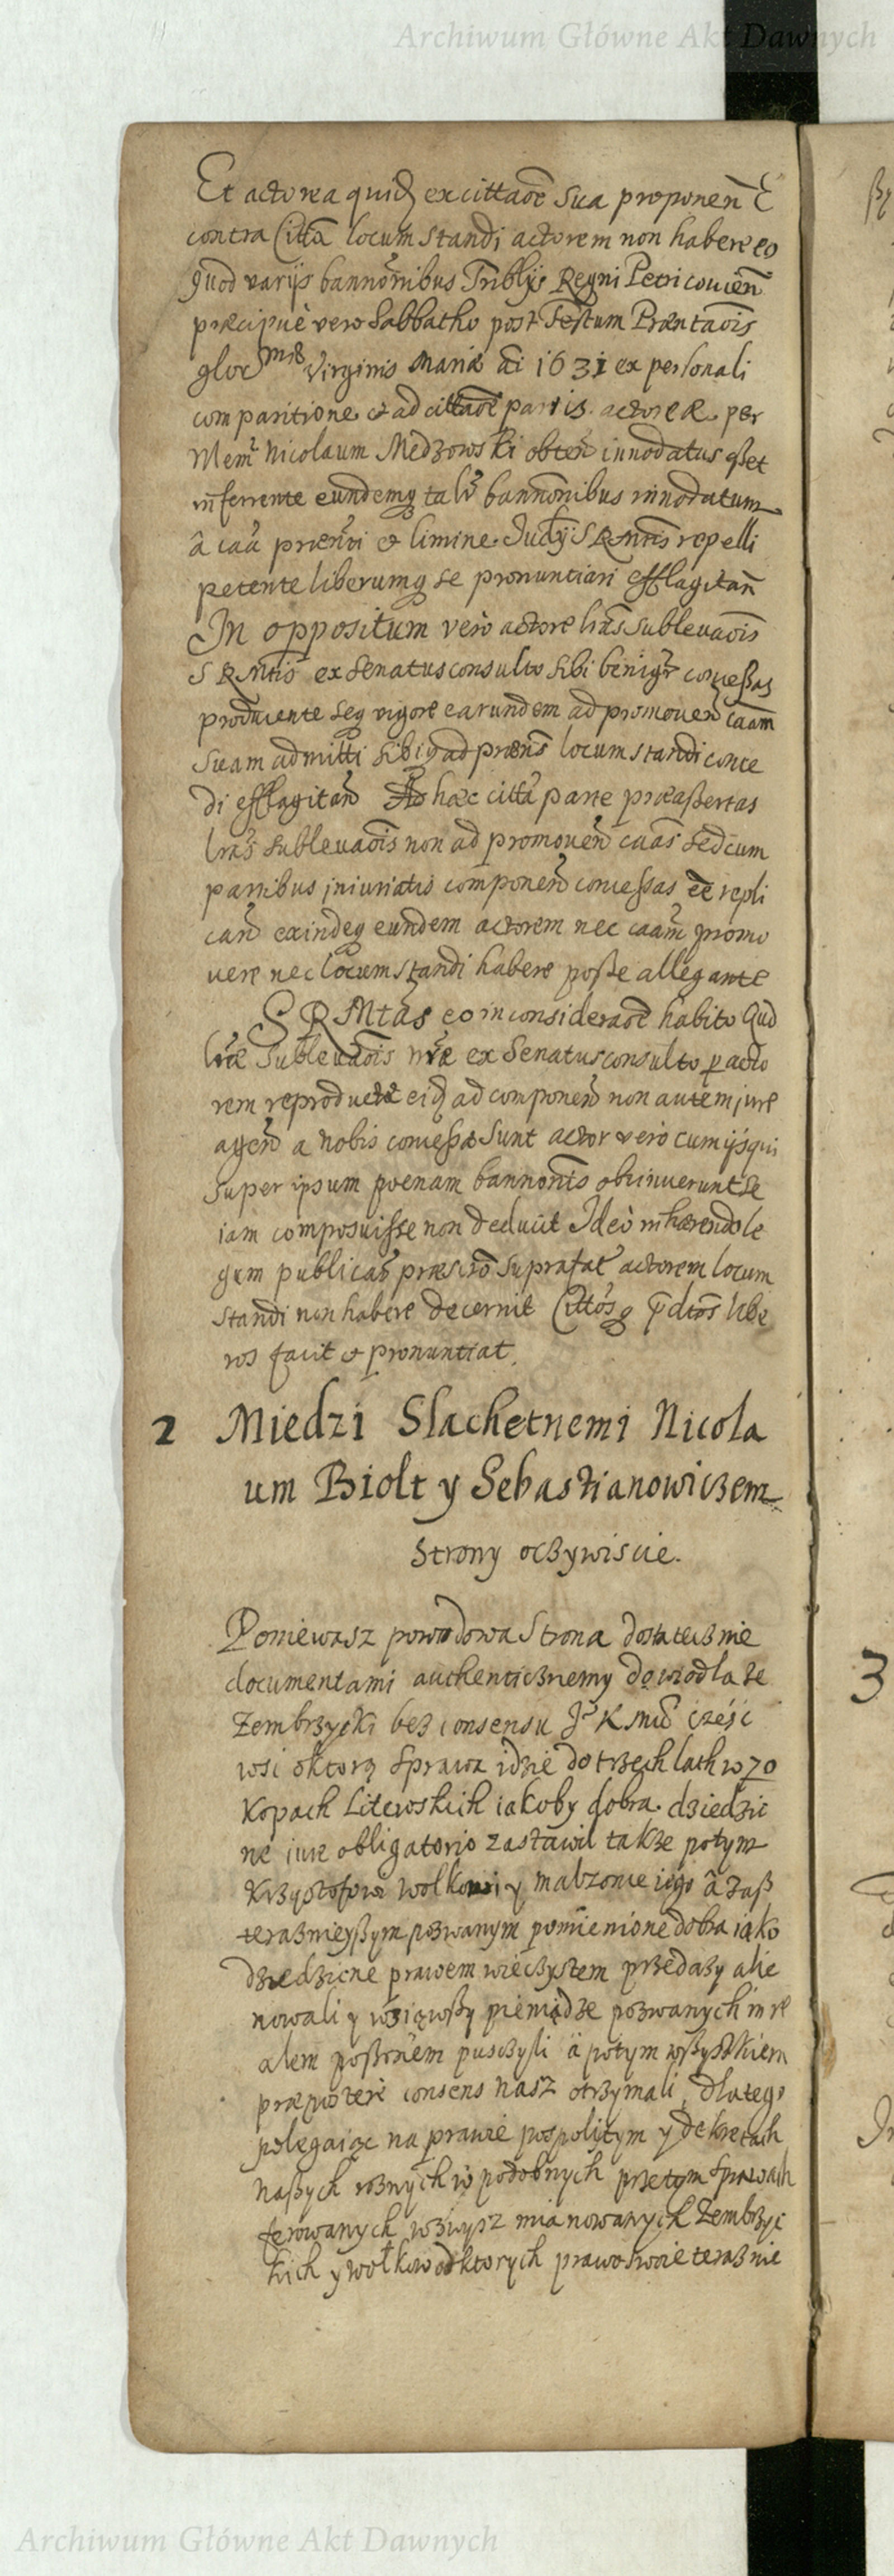 Archiwum Główne Akt Dawnych
Et actorea quid ex cittaõe sua proponen̄ E
contra Citta locum standi actorem non habere eo
quod varijs bannõnibus Tribl̃js Regni Petricouien̄
præcipuè vero Sabbatho post Festum Præntaõis
glor mæ Virginis Mariæ ãi 1631 ex personali
comparitione et ad cittaõe partis actoreæ per
Mem̃ Nicolaum Medzowski obten̄ innodatus eßet
inferrente eundemq̃ talĩ bannõnibus innodatum
â caã præn̄ti et limine Judỹ S R Mttis repelli
petente liberumq̃ se pronuntiari efflagitan̄
In oppositum verò actore lras̃ subleuaõis
S R Mttis ex Senatusconsulto sibi benigẽ conceßas
producente seq̃ vigore earundem ad promouen̄ caam̃
suam admitti sibiq̃ ad præn̄s locum standi conce
di efflagitan̄ hæc citta parte præaßertas
lras̃ subleuaõis non ad promouen̄ caas̃ sed cum
partibus iniuriatis componen̄ concessas eẽ repli
can̄ exindeq̃ eundem actorem nec caam̃ promo
uere nec locum standi habere poße allegante
S R Mtas eo in consideraõe habito Qud̃
lræ̃ Subleuaõis nræ̃ ex Senatusconsulto p̱ acto
rem reproductæ eid̃ ad componen̄ non autem jure
agen̄ a nobis conceßæ sunt actor vero cum ijs qui
super ipsum pœnam bannoñis obtinuerunt se
iam composuisse non deducit Ideò inhærendo le
gum publicaȓ præscrõ suprafat̃ actorem locum
standi non habere decernit Cittos̃q̃ p̃dtos̃ libe
ros facit et pronuntiat.
2 Miedzi Slachetnemi Nicola
um Biolt y Sebastianowiczem
Strony oczywiscie.
Poniewasz powodowa Strona dostatecznie
documentami authenticznemy dowiodla ze
Zembrzycki bez consensu Je͂ K Mći część
wsi o ktorą sprawa idzie do trzech lath w 70
Kopach Litewskich iakoby dobra dziedzic
ne iure obligatorio zastawil takze potym
Krzysztofowi Wolkowi y malzonce iego â zaß
teraznieyßym pozwanym pomienione dobra iako
dziedzicne prawem wieczystem przedazy alie
nowali y wziąwßy pieniądze pozwanych in re
alem poßeßem puscyli â potym wßystkiem
præpostere consens nasz otrzymali, dlatego
polegaiąc na prawie pospolitym y dekretach
naßych roznych w podobnych przetym sprawach
ferowanych wzwysz mianowanych Zembrzyc
kich y Wołkow od ktorych prawo swoie teraznie
3
Archiwum Główne Akt Dawnych